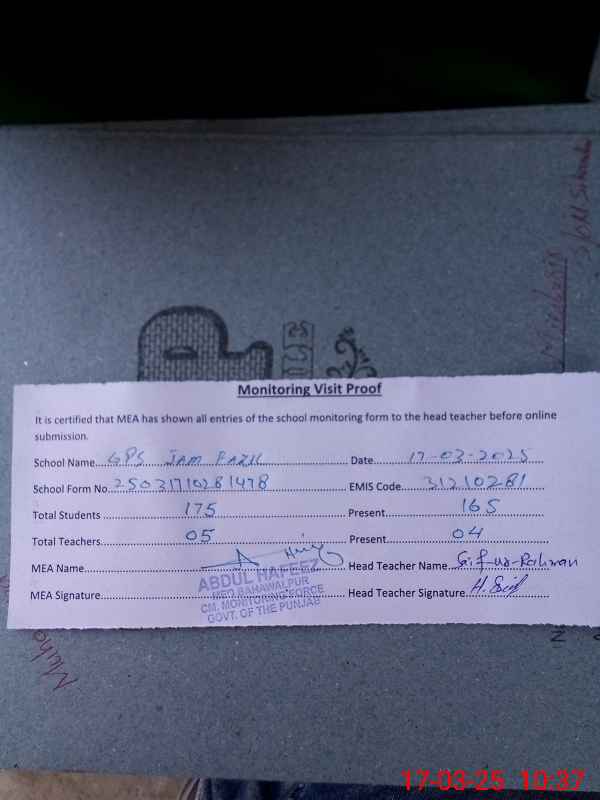 Monitoring Visit Proof
It is certified that MEA has shown all entries of the school monitoring form to the head teacher before online
submission.
School Name GPS JAM FAZIL Date 17-03-2025
School Form No. 25031710281478 EMIS Code 31210281
Total Students 175 Present 165
Total Teachers 05 Present 04
MEA Name Head Teacher Name Saif-ur-Rahman
MEA Signature Head Teacher Signature
ABDUL HAFEEZ
BAHAWALPUR
CM. MONITORING FORCE
GOVT. OF THE PUNJAB
17-03-25 10:37